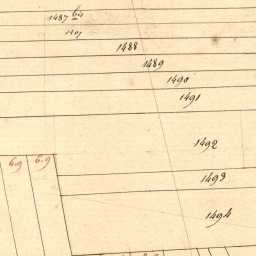 1487 bis
1488
1489
1490
1491
1492
69 69
1493
1494